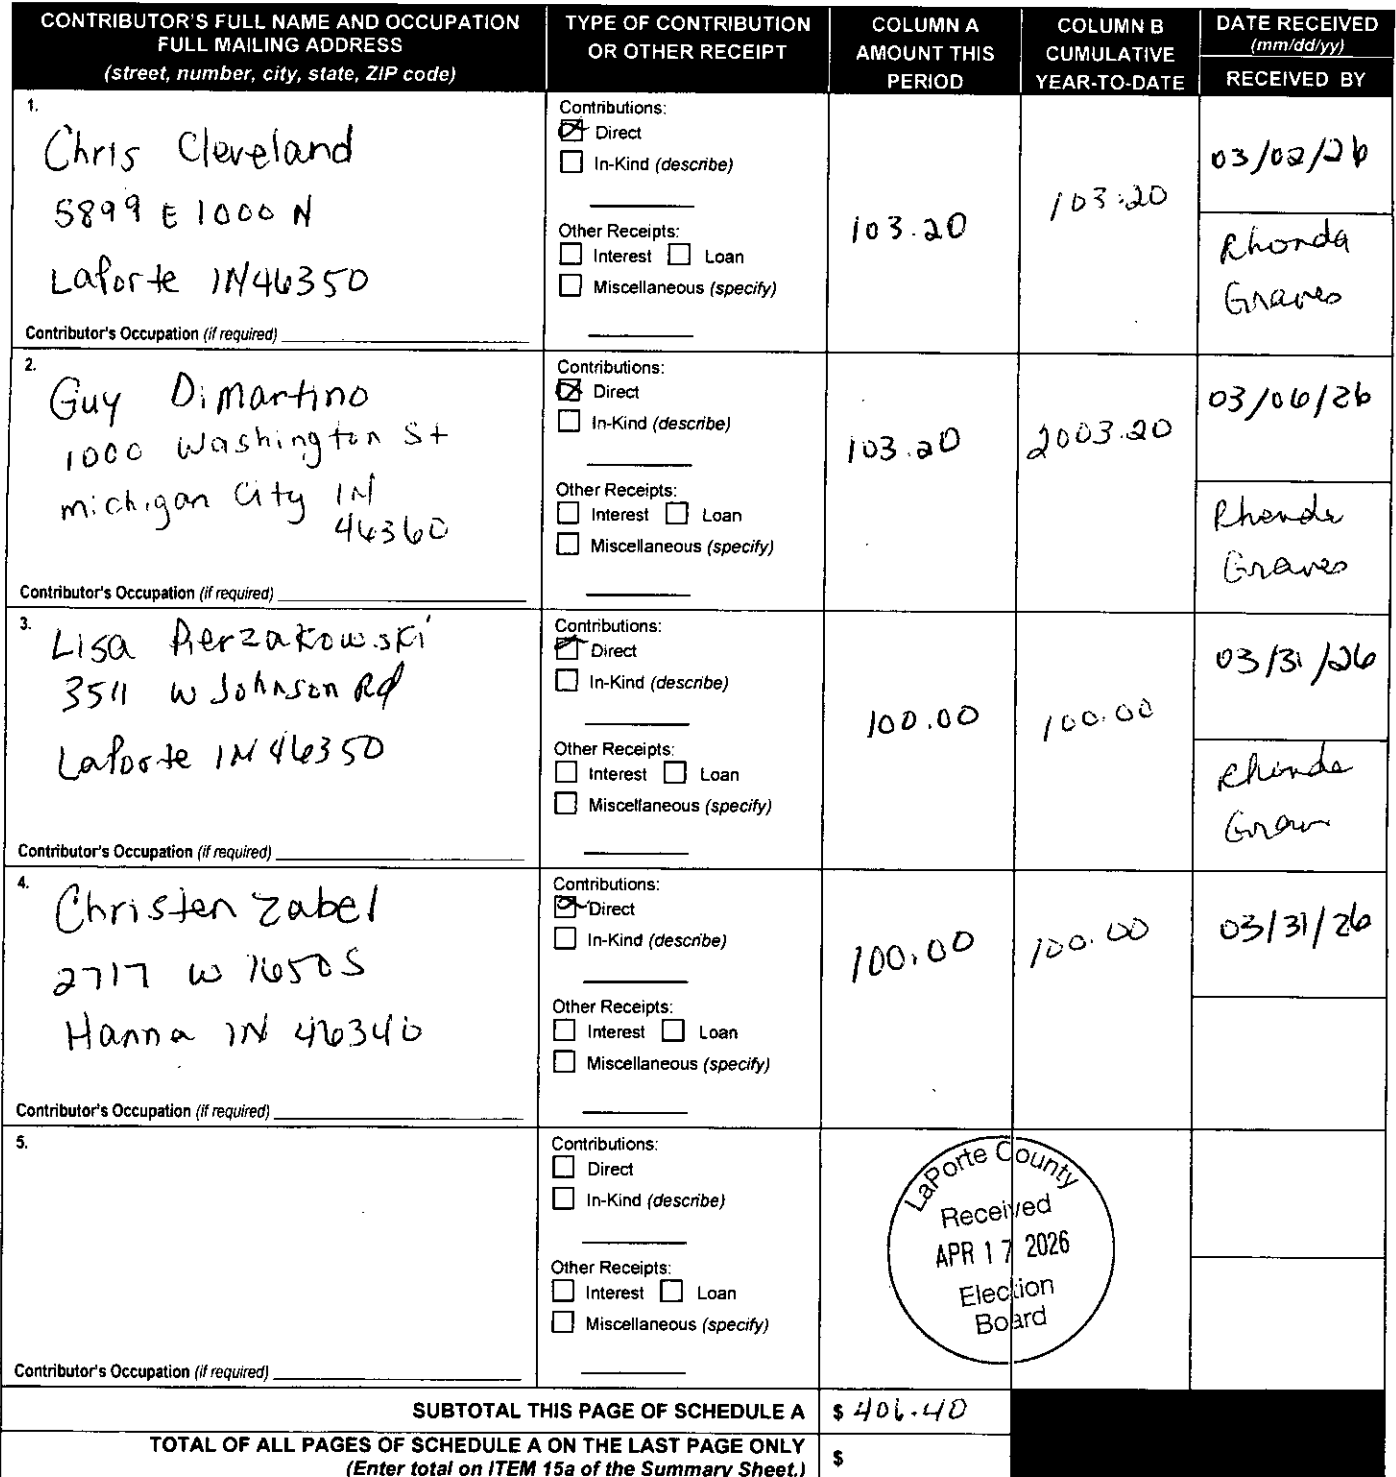 CONTRIBUTOR'S FULL NAME AND OCCUPATION
FULL MAILING ADDRESS
(street, number, city, state, ZIP code)
TYPE OF CONTRIBUTION
OR OTHER RECEIPT
COLUMN A
AMOUNT THIS
PERIOD
COLUMN B
CUMULATIVE
YEAR-TO-DATE
DATE RECEIVED
(mm/dd/yy)
RECEIVED BY
1.
Chris Cleveland
5899 E 1000 N
LaPorte IN 46350
Contributor's Occupation (if required)
Contributions:
Direct
In-Kind (describe)
Other Receipts:
Interest Loan
Miscellaneous (specify)
103.20
103.20
03/02/26
Rhonda
Graves
2.
Guy DiMartino
1000 Washington St
michigan City IN
46360
Contributor's Occupation (if required)
Contributions:
Direct
In-Kind (describe)
Other Receipts:
Interest Loan
Miscellaneous (specify)
103.20
2003.20
03/06/26
Rhonda
Graves
3.
Lisa Pierzakowski
3511 W Johnson Rd
LaPorte IN 46350
Contributor's Occupation (if required)
Contributions:
Direct
In-Kind (describe)
Other Receipts:
Interest Loan
Miscellaneous (specify)
100.00
100.00
03/31/26
Rhonda
4.
Christen Zabel
2717 W 1650 S
Hanna IN 46340
Contributor's Occupation (if required)
Contributions:
Direct
In-Kind (describe)
Other Receipts:
Interest Loan
Miscellaneous (specify)
100.00
100.00
03/31/26
5.
Contributor's Occupation (if required)
Contributions:
Direct
In-Kind (describe)
Other Receipts:
Interest Loan
Miscellaneous (specify)
LaPorte County
Received
APR 17 2026
Election
Board
SUBTOTAL THIS PAGE OF SCHEDULE A $ 406.40
TOTAL OF ALL PAGES OF SCHEDULE A ON THE LAST PAGE ONLY
(Enter total on ITEM 15a of the Summary Sheet.) $